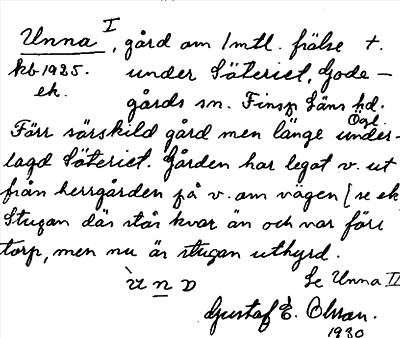 Unna I, gård om 1 mtl. frälse +.
kb 1925. under Säteriet, Gode-
ek. gårds sn. Finsp. Läns hd.
Ögl.
Förr särskild gård men länge under-
lagd Säteriet. Gården har legat v. ut
från herrgården på v. om vägen [se ek
Stugan där står kvar än och var förr
torp, men nu är stugan uthyrd.
Se Unna II
Gustaf E. Olsson.
1930